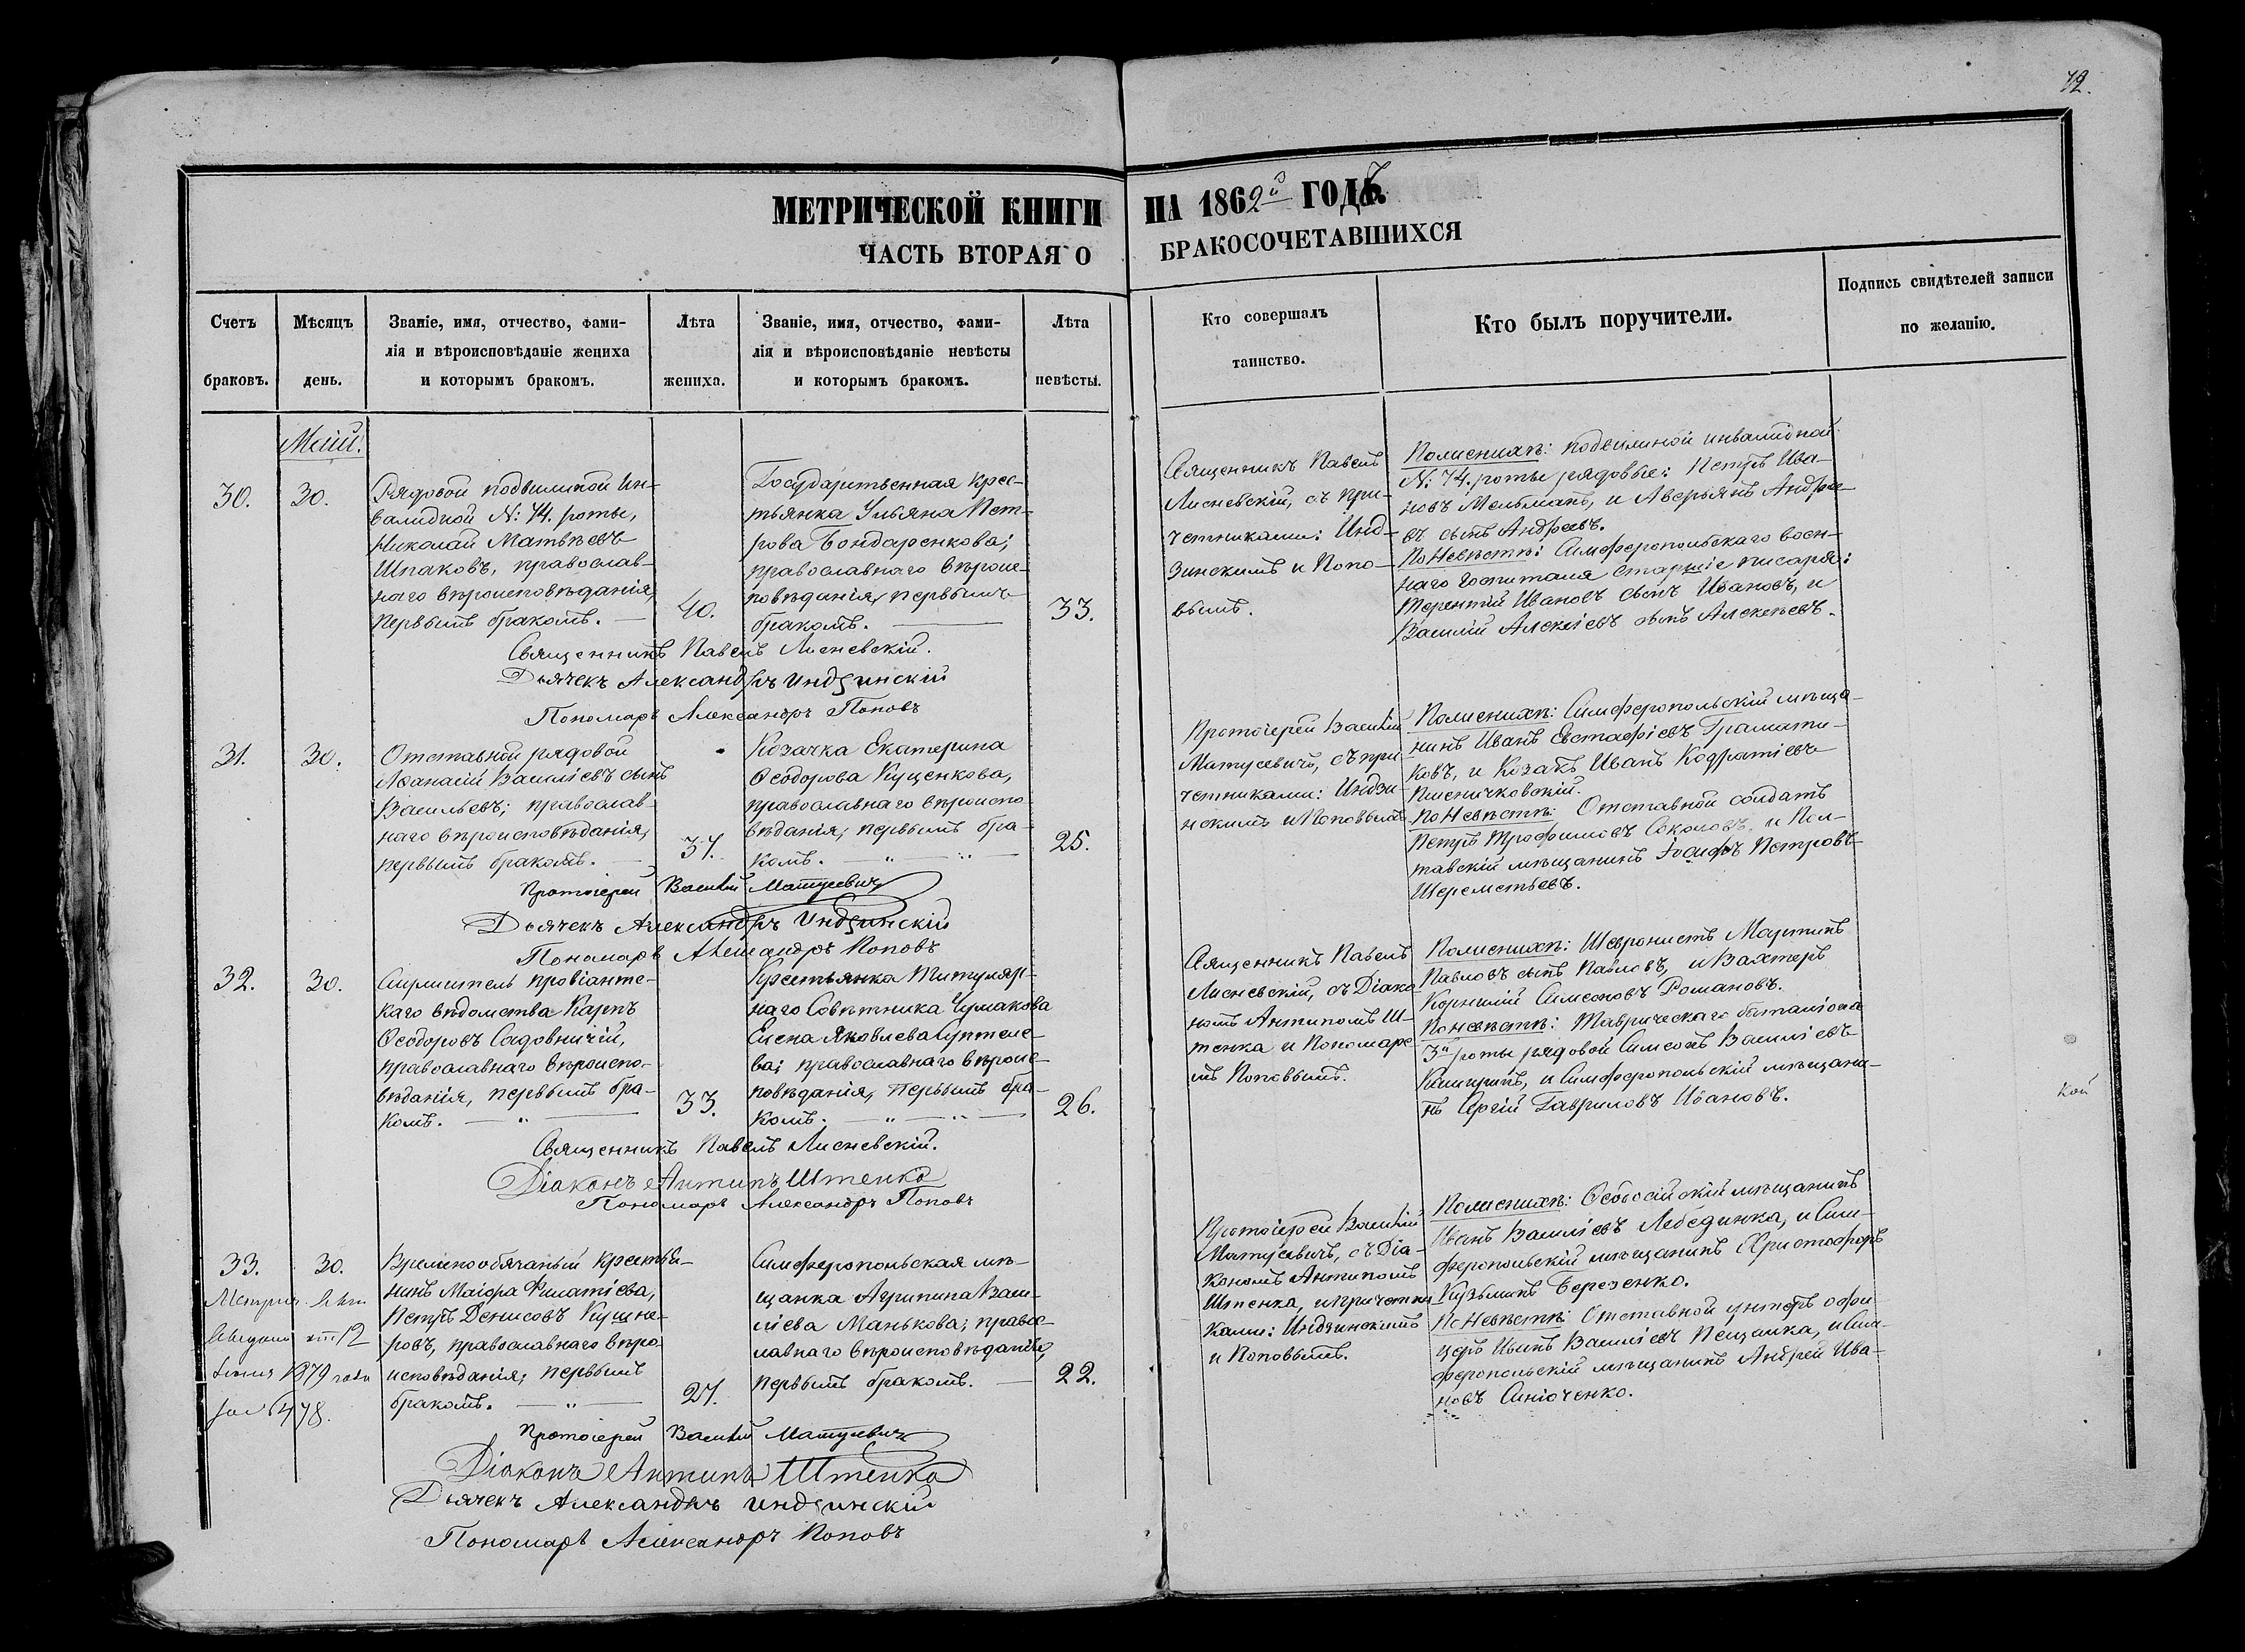 72.
МЕТРИЧЕСКОЙ КНИГИ НА 1862й ГОДЪ.
ЧАСТЬ ВТОРАЯ О БРАКОСОЧЕТАВШИХСЯ
Счетъ браковъ.
Мѣсяцъ день.
Званіе, имя, отчество, фами-
лія и вѣроисповѣданіе жениха
и которымъ бракомъ.
Лѣта жениха.
Званіе, имя, отчество, фами-
лія и вѣроисповѣданіе невѣсты
и которымъ бракомъ.
Лѣта невѣсты.
Кто совершалъ
таинство.
Кто былъ поручители.
Подпись свидѣтелей записи
по желанію.
Май.
30.
30.
Рядовой подвижной Ин-
валидной №: 74. роты,
Николай Матвѣевъ
Шпаковъ, православ-
наго вѣроисповѣданія,
первымъ бракомъ.
40.
Государственная крес-
тьянка Ульяна Пет-
рова Бондаренкова;
православнаго вѣроис-
повѣданія, первымъ
бракомъ.
33.
Священникъ Павелъ
Лисневскій, съ при-
четниками: Инд-
зинскимъ и Попо-
вымъ.
По женихѣ: подвижной инвалидной
№: 74. роты рядовые: Петръ Ива-
новъ Мельманъ, и Аверьянъ Андрее-
въ сынъ Андреевъ.
По Невѣстѣ: Симферопольскаго воен-
наго госпиталя старшіе писаря:
Терентій Ивановъ сынъ Ивановъ, и
Василій Алексѣевъ сынъ Алексѣевъ.
Священникъ Павелъ Лисневскій.
Дьячекъ Александръ Индзинскій
Пономарь Александръ Поповъ
31.
30.
Отставной рядовой
Аѳанасій Василіевъ сынъ
Васильевъ; православ-
наго вѣроисповѣданія,
первымъ бракомъ.
37.
Козачка Екатерина
Ѳеодорова Куценкова,
православнаго вѣроиспо-
вѣданія, первымъ бра-
комъ.
25.
Протоіерей Василій
Матусевичъ, съ при-
четниками: Индзи-
нскимъ и Поповымъ
По женихѣ: Симферопольскій мѣща-
нинъ Иванъ Евстафіевъ Грамати-
ковъ, и Козакъ Иванъ Кодратіевъ
Пшеничковскій.
По Невѣстѣ: Отставной солдатъ
Петръ Трофимовъ Соколовъ, и Пол-
тавскій мѣщанинъ Іосифъ Петровъ
Шереметьевъ.
Протоіерей Василій Матусевичъ
Дьячекъ Александръ Индзинскій
Пономарь Александръ Поповъ
32.
30.
Служитель провіантс-
каго вѣдомства Карпъ
Ѳеодоровъ Садовничій,
православнаго вѣроиспо-
вѣданія, первымъ бра-
комъ.
33.
Крестьянка Титуляр-
наго Совѣтника Чумакова
Елена Яковлева Суптеле-
ва; православнаго вѣроис-
повѣданія, первымъ бра-
комъ.
26.
Священникъ Павелъ
Лисневскій, съ Діако-
номъ Антипомъ Ш-
тенка и Пономаре-
мъ Поповымъ.
По женихѣ: Шевронистъ Мартинъ
Павловъ сынъ Павловъ, и Вахтеръ
Корнилій Симеоновъ Романовъ.
По невѣстѣ: Таврическаго баталіона
3й роты рядовой Симеонъ Василіевъ
и Симферопольскій мѣщани-
нъ Сергій Гавриловъ Ивановъ.
кой
Священникъ Павелъ Лисневскій.
Діаконъ Антипъ Штенко
Пономарь Александръ Поповъ
33.
30.
Временнообязаный крестья-
нинъ Маіора Филатіева,
Петръ Денисовъ Кушне-
ровъ, православнаго вѣро-
исповѣданія, первымъ
бракомъ.
27.
Симферопольская мѣ-
щанка Агрипина Васи-
ліева Манькова; правос-
лавнаго вѣроисповѣданія,
первымъ бракомъ.
22.
12
1879 года
478.
Протоіерей Василій
Матусевичъ, съ Діа-
кономъ Антипомъ
Штенка, и причетни-
ками: Индзинскимъ
и Поповымъ.
По женихѣ: Ѳеодосійскій мѣщанинъ
Иванъ Василіевъ Лебединка, и Сим-
феропольскій мѣщанинъ Христофоръ
Кузьминъ Березенко.
По Невѣстѣ: Отставной унтеръ офи-
церъ Иванъ Василіевъ Пещанка, и Сим-
феропольскій мѣщанинъ Андрей Ива-
новъ Синюченко.
Протоіерей Василій Матусевичъ
Діаконъ Антипъ Штенко
Дьячекъ Александръ Индзинскій
Пономарь Александръ Поповъ